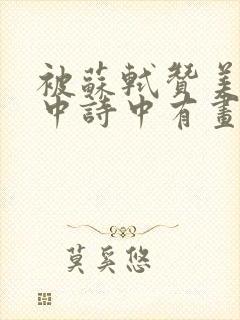 被蘇軾贊美
中詩中有畫
莫奚悠